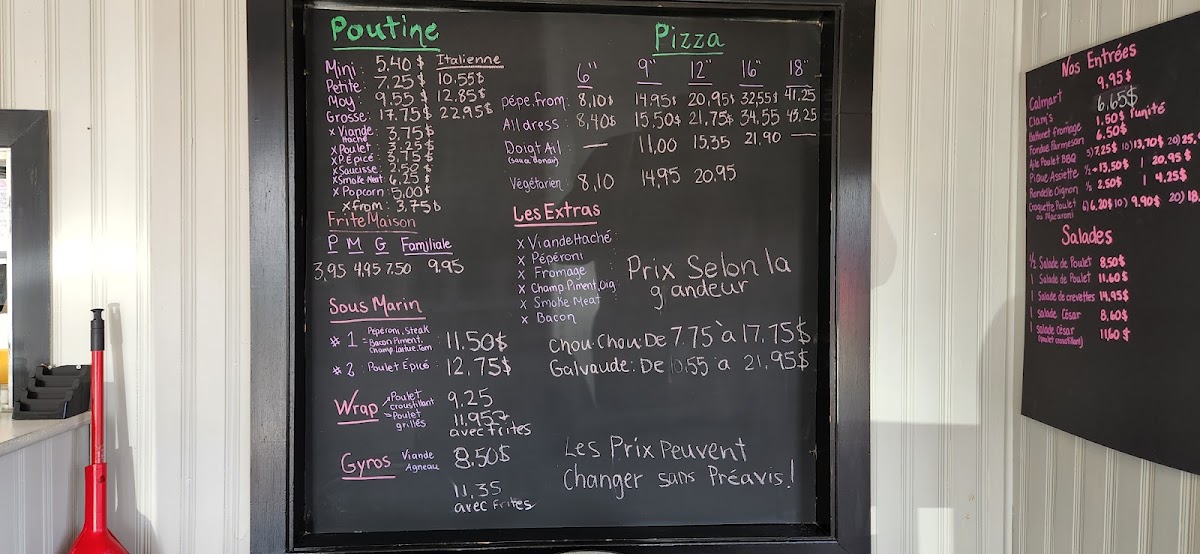 Poutine
Italienne
Mini: 5.40$ 10.55$
Petite: 7.25$ 12.85$
Moy: 9.55$ 22.95$
Grosse: 17.75$
x Viande Haché : 3.75$
x Poulet : 3.25$
x P.Épicé : 3.75$
x Saucisse : 2.50$
x Smoke Meat : 6.25$
x Popcorn : 5.00$
x from : 3.75$
Frite Maison
P M G Familiale
3,95 4.95 7.50 9.95
Sous Marin
# 1 = Pepéroni, Steak
Bacon Piment,
Champ. Laitue. Tom
11.50$
# 2 : Poulet Épicé 12.75$
Wrap
Poulet croustillant
9.25
Poulet grillés
11.95
avec frites
Gyros Viande Agneau 8.50$
11,35
avec frites
Pizza
6" 9" 12" 16" 18"
pépe.from: 8,10$ 14.95$ 20,95$ 32,55$ 41,25
All dress: 8,40$ 15.50$ 21,75$ 34.55 43,25
Doigt Ail — 11,00 15.35 21,90 —
Végétarien: 8,10 14,95 20.95
Les Extras
x Viande Haché
x Pépéroni
x Fromage
x Champ, Piment, Oig
x Smoke Meat
x Bacon
Prix Selon la
grandeur
Chou.Chou: De 7.75 à 17.75$
Galvaude: De 10.55 à 21,95$
Les Prix Peuvent
Changer sans Préavis!
Nos Entrées
9,95$
Calmart 6.65$
Clam's 1.50$ l'unité
Batonet fromage 6.50$
Fondue Parmesan
Aile Poulet BBQ 5) 7,25$ 10) 13,70$ 20) 25,
Pique Assiette ½ → 13,50$ 1 20.95$
Rondelle Oignon ½ 2.50$ 1 4.25$
Croquette Poulet 6) 6,20$ 10) 9.90$ 20) 18
ou Macaroni
Salades
½ Salade de Poulet 8,50$
1 Salade de Poulet 11.60$
1 Salade de crevettes 14,95$
1 Salade César 8,60$
1 Salade César 11,60$
(poulet croustillant)